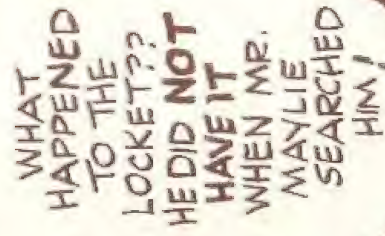 WHAT
HAPPENED
TO THE
LOCKET??
HE DID NOT
HAVE IT
WHEN MR.
MAYLIE
SEARCHED
HIM!